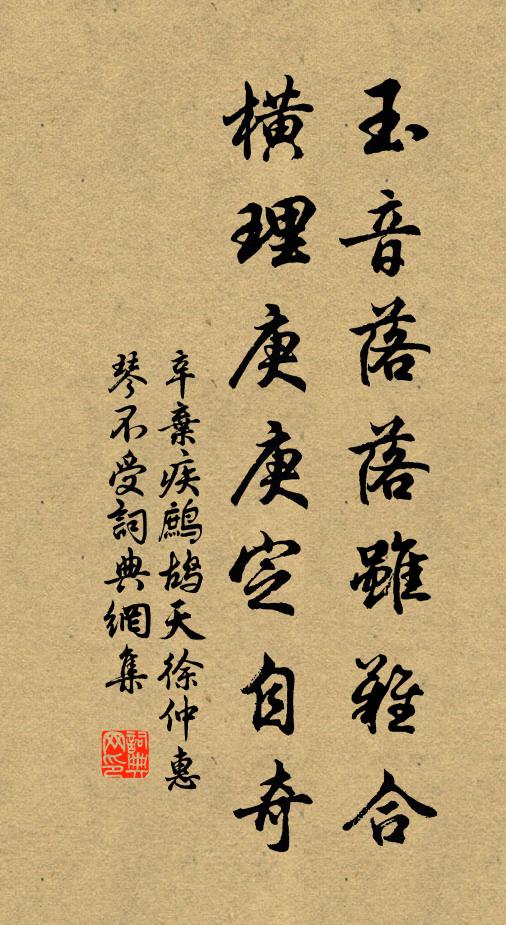 玉音落落雖難合
橫理庚庚定自奇
辛棄疾鷓鴣天徐仲惠
琴不受詞典網集
詞典
网印